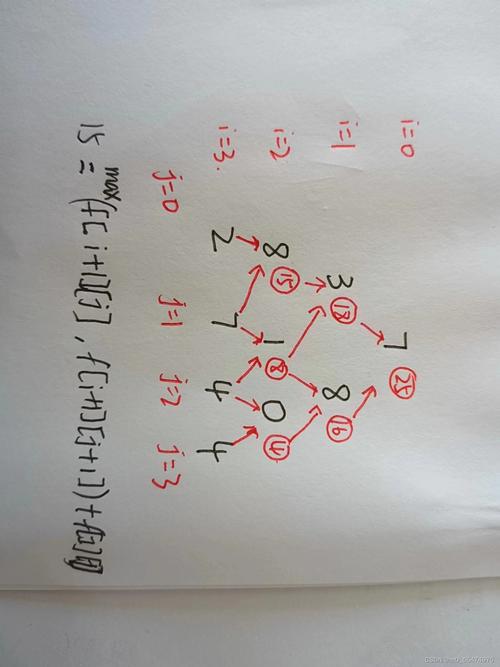 i=0 7 25
i=1 3 18 8 16
i=2 8 15 1 8 0 4
i=3. 2 7 4 4
j=0 j=1 j=2 j=3
15 = max(f[i+1][j], f[i+1][j+1])+f[i][j]